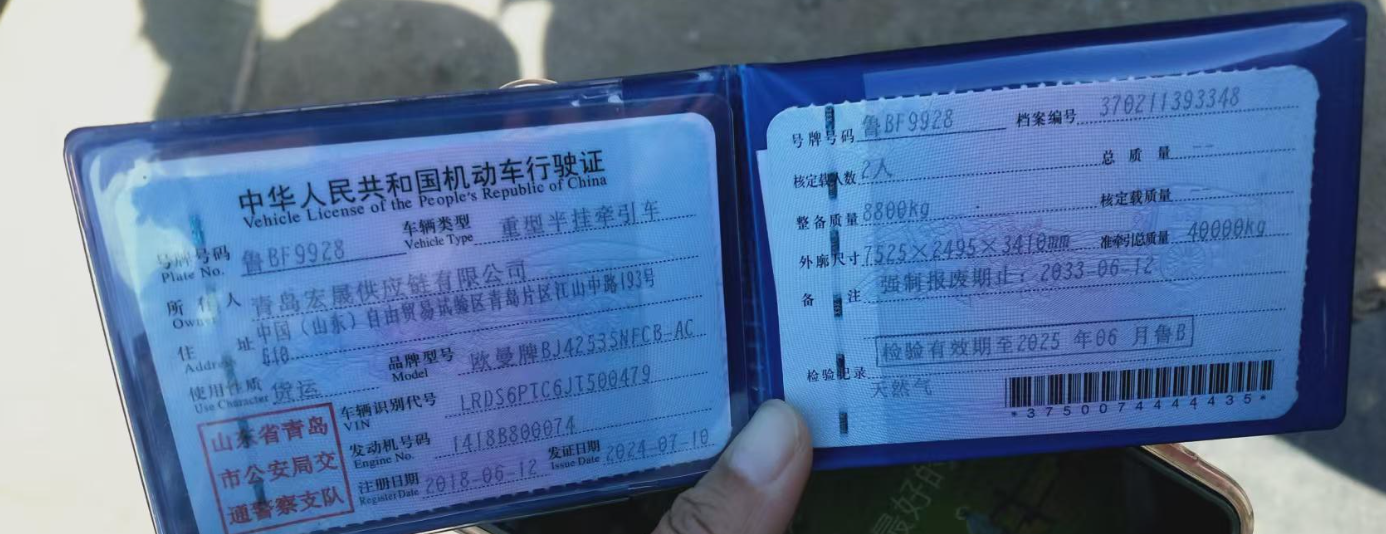 中华人民共和国机动车行驶证
Vehicle License of the People's Republic of China
号牌号码 鲁BF9928 车辆类型 重型半挂牵引车
Plate No. Vehicle Type
所有人 青岛宏展供应链有限公司
Owner
住址 中国（山东）自由贸易试验区青岛片区江山中路193号
Address 610
使用性质 货运 品牌型号 欧曼牌BJ4253SNFCB-AC
Use Character Model
车辆识别代号 LRDS6PTC6JT500479
VIN
发动机号码 1418B800074
Engine No.
注册日期 2018-06-12 发证日期 2024-07-10
Register Date Issue Date
山东省青岛
市公安局交
通警察支队
号牌号码 鲁BF9928 档案编号 370211393348
核定载人数 2人 总质量 --
整备质量 8800kg 核定载质量 --
外廓尺寸 7525×2495×3410mm 准牵引总质量 40000kg
备注 强制报废期止：2033-06-12
检验有效期至2025 年06 月鲁B
检验记录
天然气
*3750074444435*
最好的